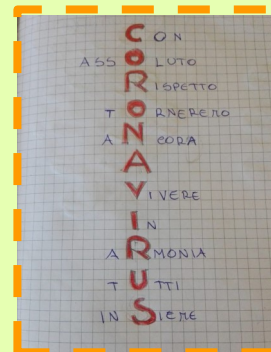 CON
ASSOLUTO
RISPETTO
TORNEREMO
ANCORA
A
VIVERE
IN
ARMONIA
TUTTI
INSIEME